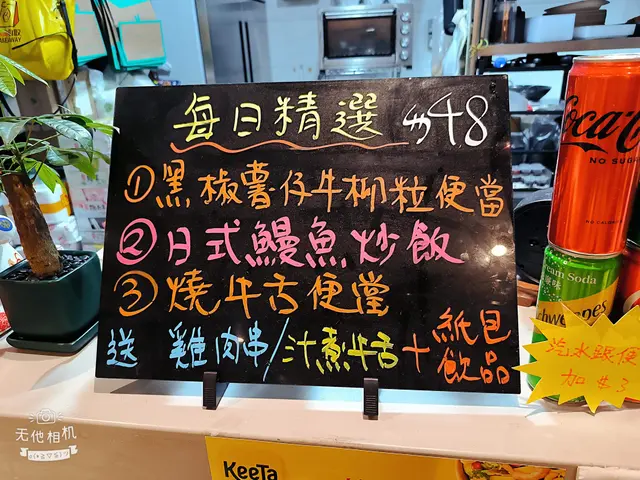 每日精選 $48
①黑椒薯仔牛柳粒便當
②日式鰻魚炒飯
③燒牛舌便當
送 雞肉串/汁煮牛舌+紙包飲品
Coca-Cola
NO SUGAR
Cream Soda
Schweppes
汽水跟便
加$3
无他相机
KeeTa